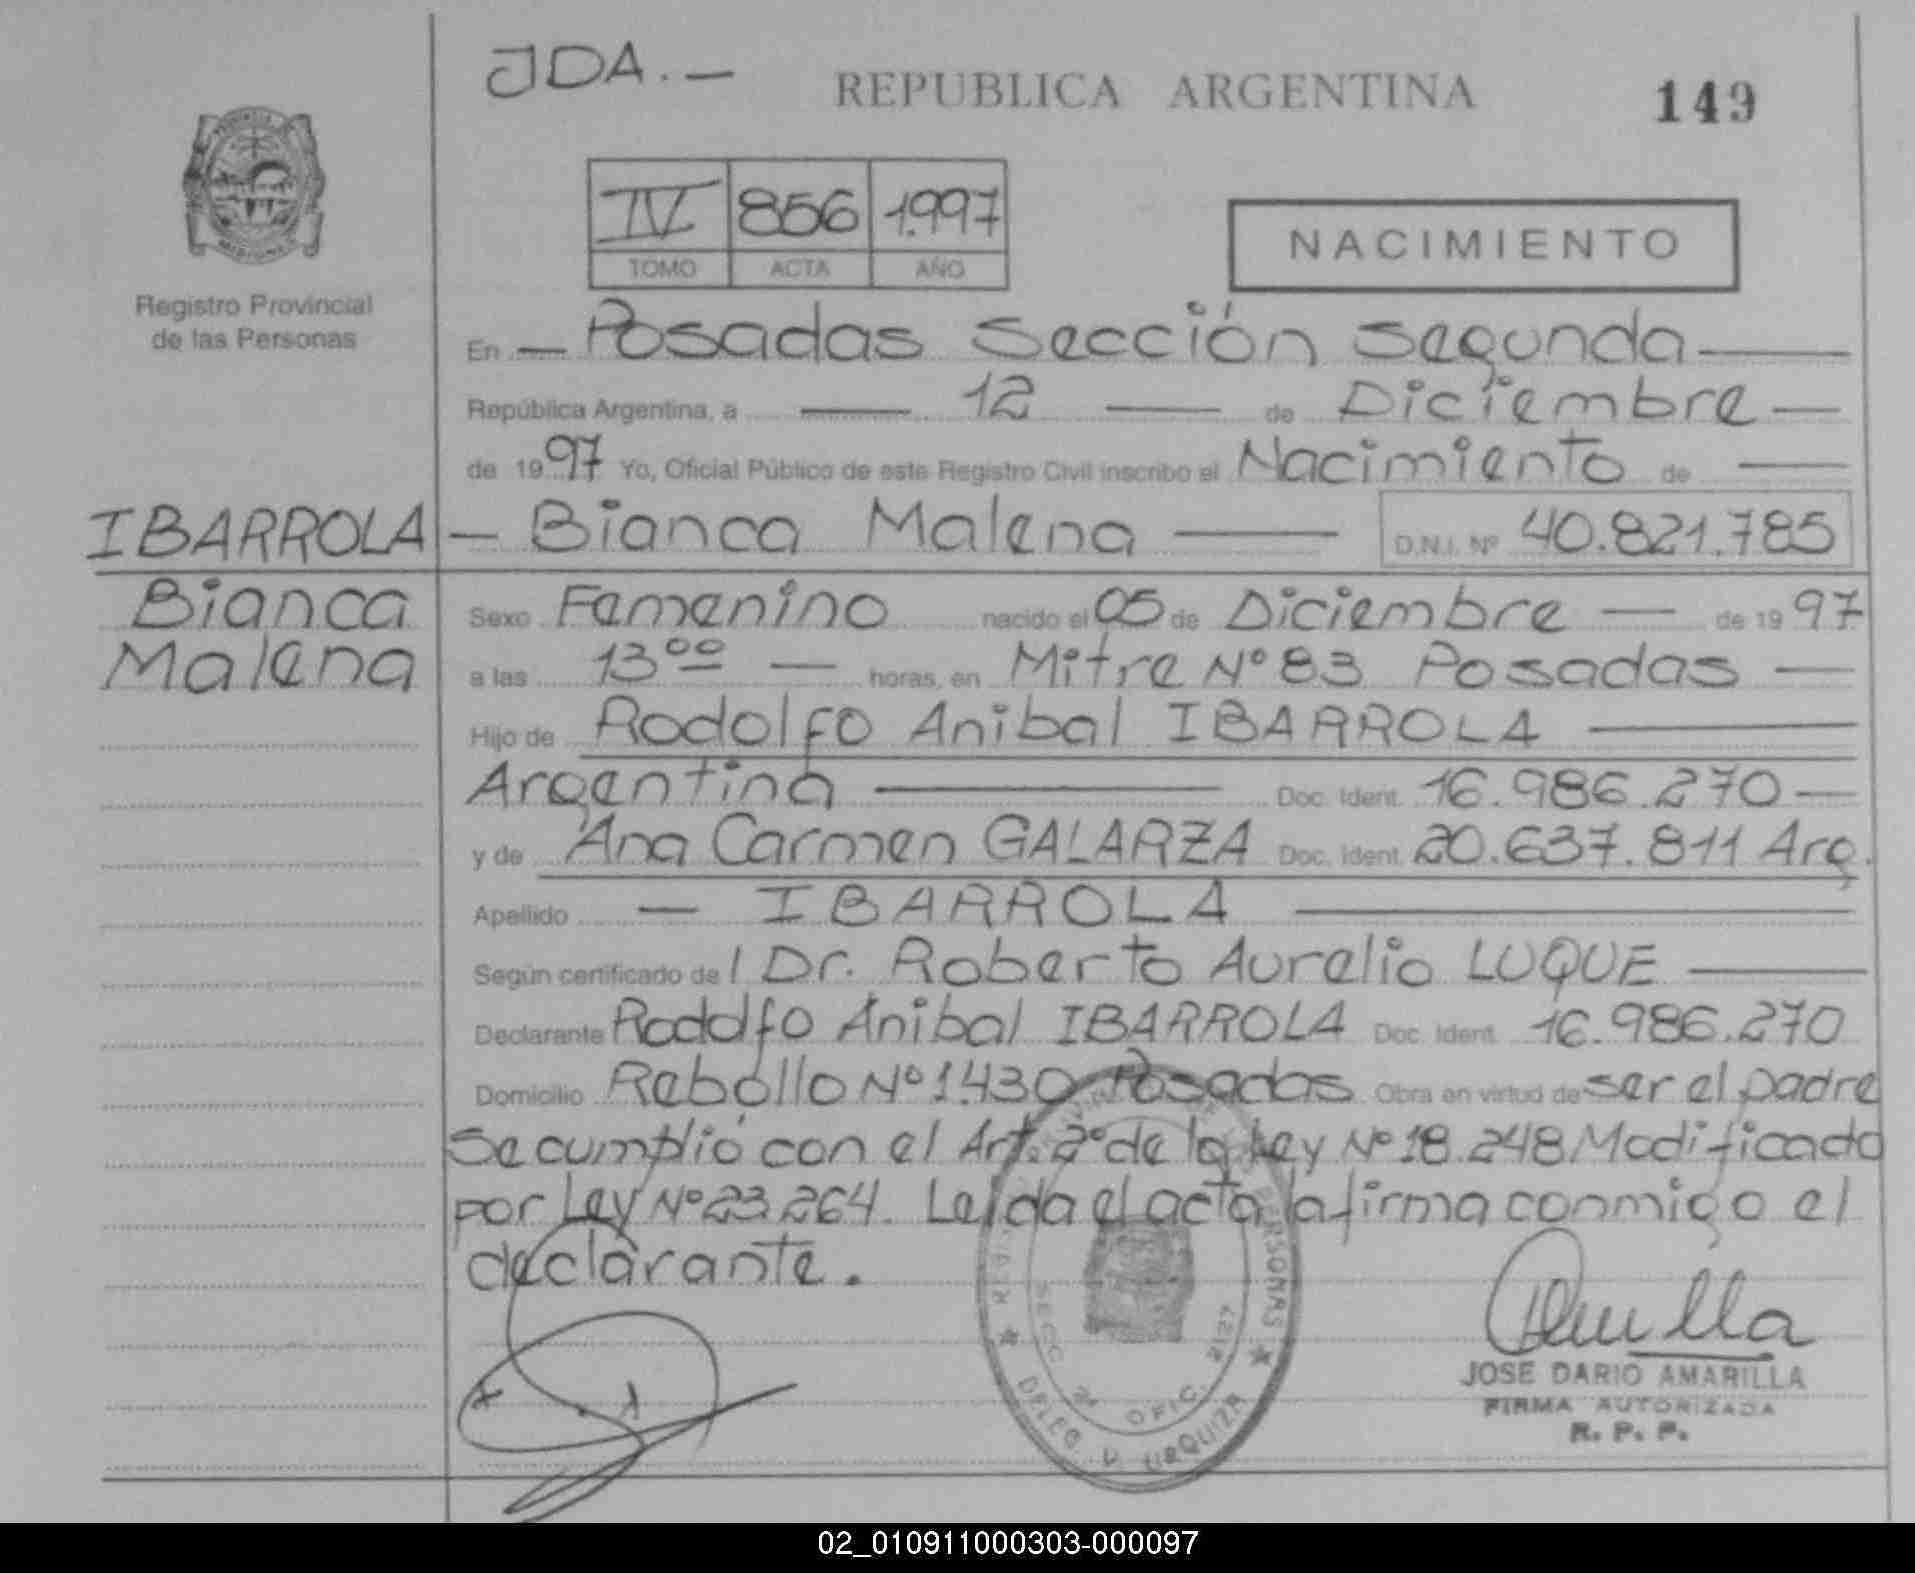 JDA.—
REPUBLICA ARGENTINA
149
IV 856 1.997
TOMO ACTA AÑO
NACIMIENTO
Registro Provincial
de las Personas
En — Posadas Sección Segunda —
República Argentina, a — 12 — de Diciembre —
de 1997 Yo, Oficial Público de este Registro Civil inscribo el Nacimiento de —
IBARROLA — Bianca Malena — D.N.I. Nº 40.821.785
Bianca
Malena
Sexo Femenino nacido el 05 de Diciembre — de 1997
a las 13⁰⁰ — horas, en Mitre Nº 83 Posadas —
Hijo de Rodolfo Anibal IBARROLA —
Argentina — Doc. Ident. 16.986.270 —
y de Ana Carmen GALARZA Doc. Ident. 20.637.811 Arg.
Apellido — IBARROLA —
Según certificado del Dr. Roberto Aurelio LUQUE —
Declarante Rodolfo Anibal IBARROLA Doc. Ident. 16.986.270
Domicilio Rebollo Nº 1.430 Posadas Obra en virtud de ser el padre
Se cumplió con el Art. 2º de la Ley Nº 18.248 Modificado
por Ley Nº 23.264. Leída el acta la firma conmigo el
declarante.
PERSONAS
SECC. 2ª OFIC. 2127
DELEG. V. URQUIZA
JOSE DARIO AMARILLA
FIRMA AUTORIZADA
R. P. P.
02_010911000303-000097